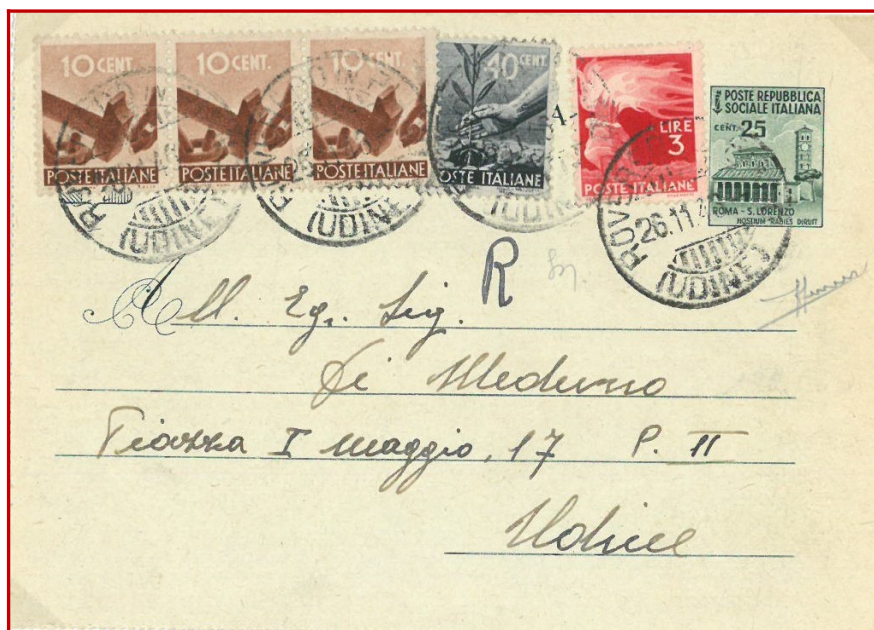 10 CENT. 10 CENT. 10 CENT. 40 CENT.
POSTE ITALIANE POSTE ITALIANE POSTE ITALIANE POSTE ITALIANE
LIRE
3
POSTE ITALIANE
POSTE REPUBBLICA
SOCIALE ITALIANA
CENT. 25
ROMA - S. LORENZO
HOSTIUM RABIES DIRUIT
26.11
(UDINE) (UDINE) (UDINE) (UDINE)
R
All. Eg. Sig.
Di Meduno
Piazza I Maggio, 17 P. II
Udine